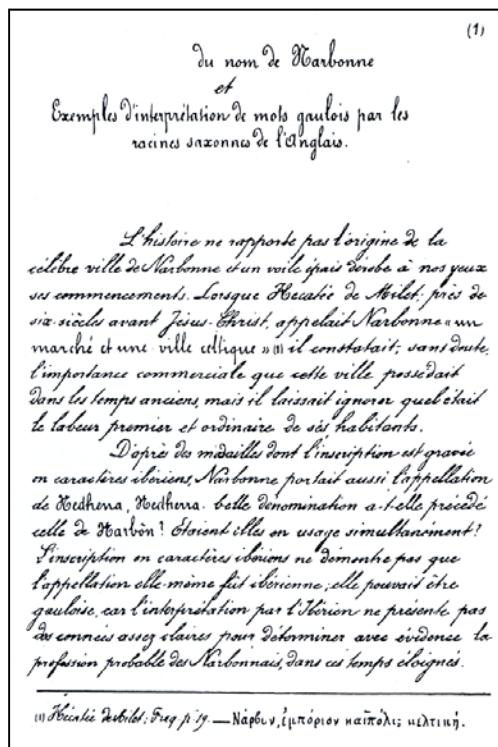 (1)
du nom de Narbonne
et
Exemples d'interprétation de mots gaulois par les
racines saxonnes de l'Anglais.
L'histoire ne rapporte pas l'origine de la
célèbre ville de Narbonne et un voile épais dérobe à nos yeux
ses commencements. Lorsque Hécatée de Milet, près de
six siècles avant Jésus-Christ, appelait Narbonne « un
marché et une ville celtique » (1) il constatait, sans doute,
l'importance commerciale que cette ville possédait
dans les temps anciens, mais il laissait ignorer quel était
le labeur premier et ordinaire de ses habitants.
D'après des médailles dont l'inscription est gravée
en caractères ibériens, Narbonne portait aussi l'appellation
de Nedhena, Nedhena. Celle dénomination a-t-elle précédé
celle de Narbôn? Étaient elles en usage simultanément?
L'inscription en caractères ibériens ne démontre pas que
l'appellation elle-même fut ibérienne; elle pouvait être
gauloise, car l'interprétation par l'Ibérien ne présente pas
des données assez claires pour déterminer avec évidence la
profession probable des Narbonnais, dans ces temps éloignés.
(1) Hécatée de Milet; Frag. p. 19. — Νάρβων, ἐμπόριον καὶ πόλις κελτική.